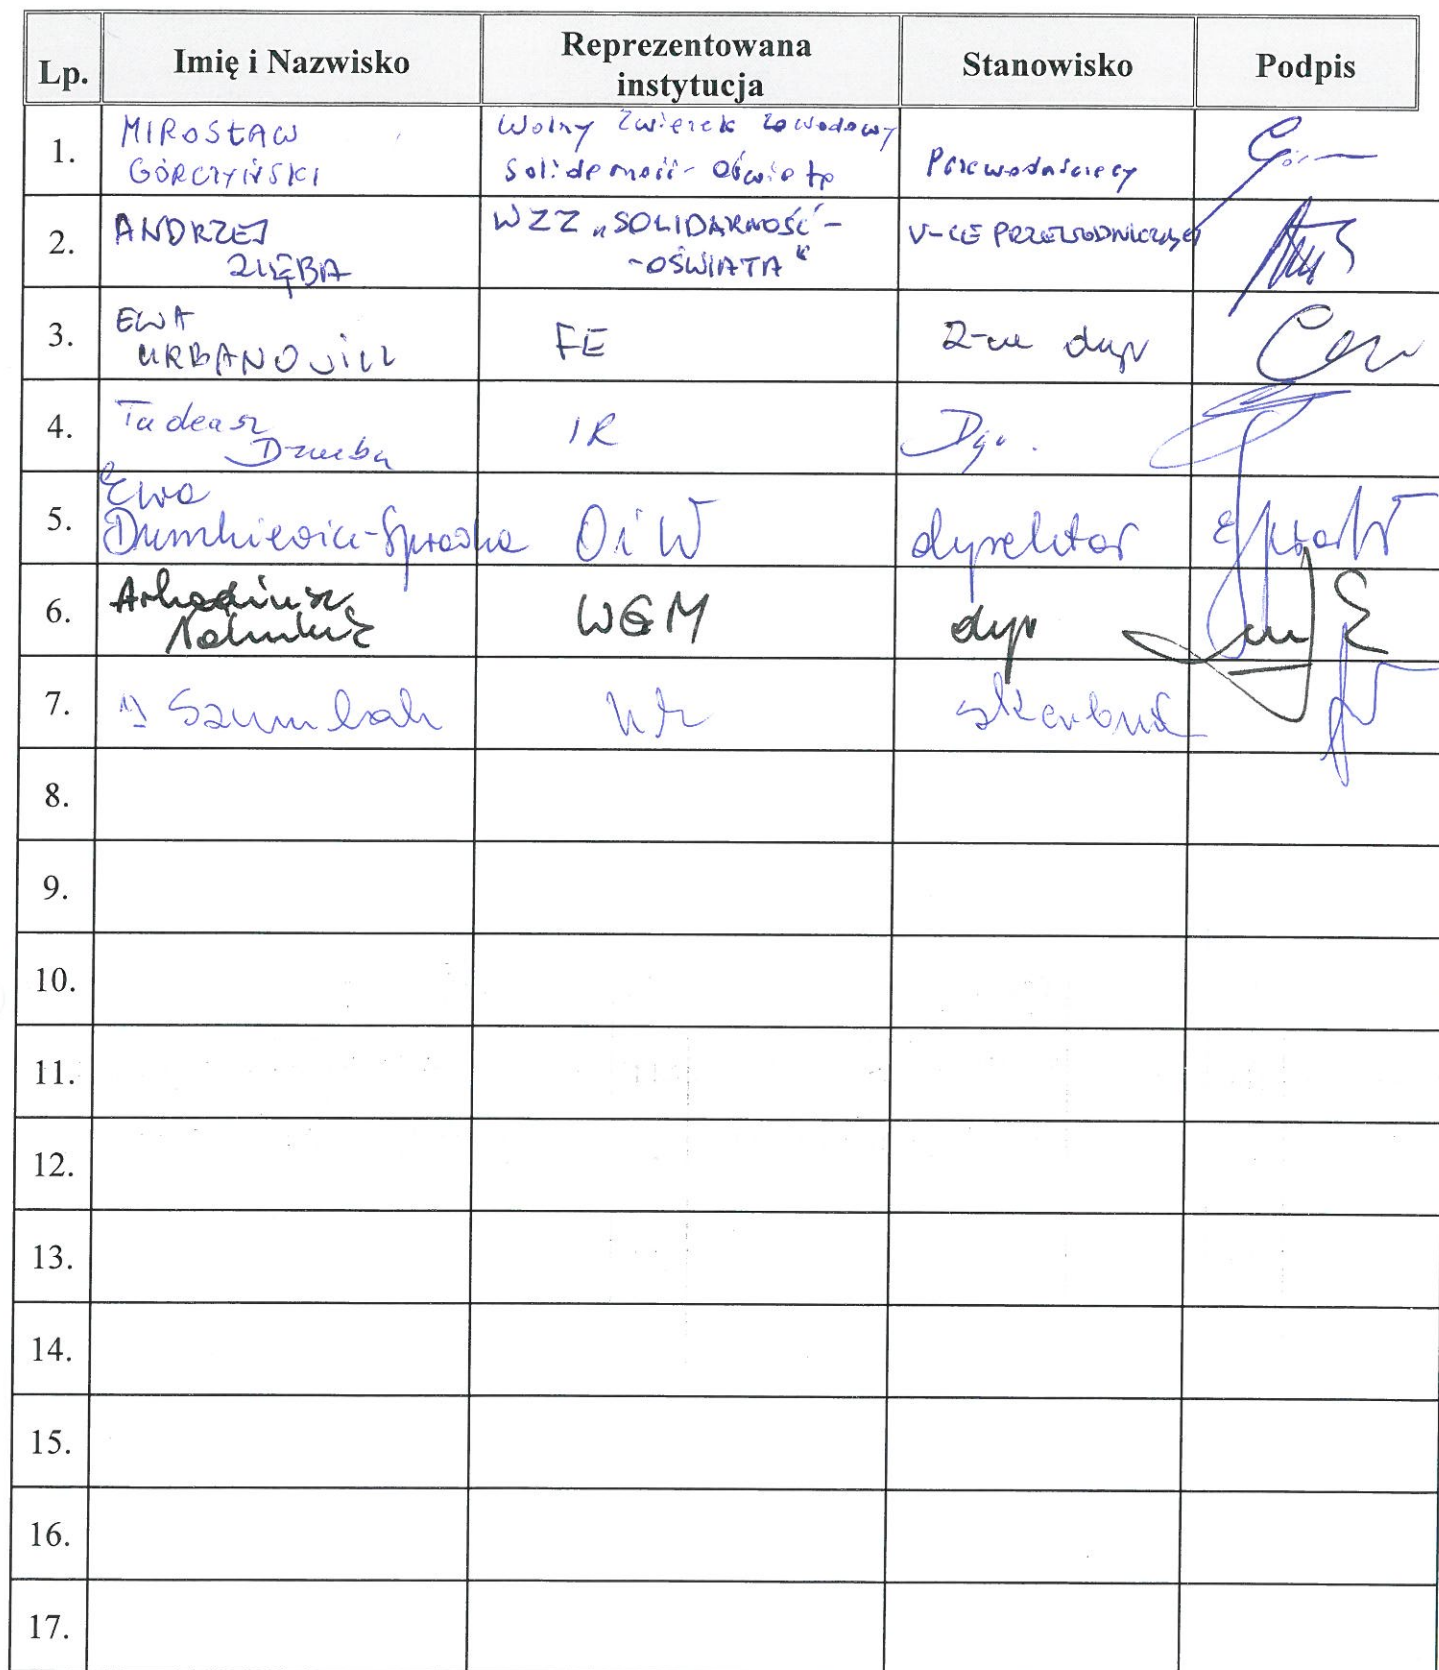 Lp. Imię i Nazwisko Reprezentowana instytucja Stanowisko Podpis
1. MIROSŁAW Wolny Związek Zawodowy
GÓRCZYŃSKI Solidarność - Oświata Przewodniczący
2. ANDRZEJ WZZ „SOLIDARNOŚĆ - V-CE PRZEWODNICZĄCY
ZIĘBA -OŚWIATA"
3. EWA
URBANOWICZ FE Z-ca dyr
4. Tadeusz IR
Dziuba Dyr.
5. Ewa
Dumkiewicz-Sprawka OiW dyrektor
6. Arkadiusz
Nahuluk WGM dyp
7. Szumlak skarbnik
8.
9.
10.
11.
12.
13.
14.
15.
16.
17.